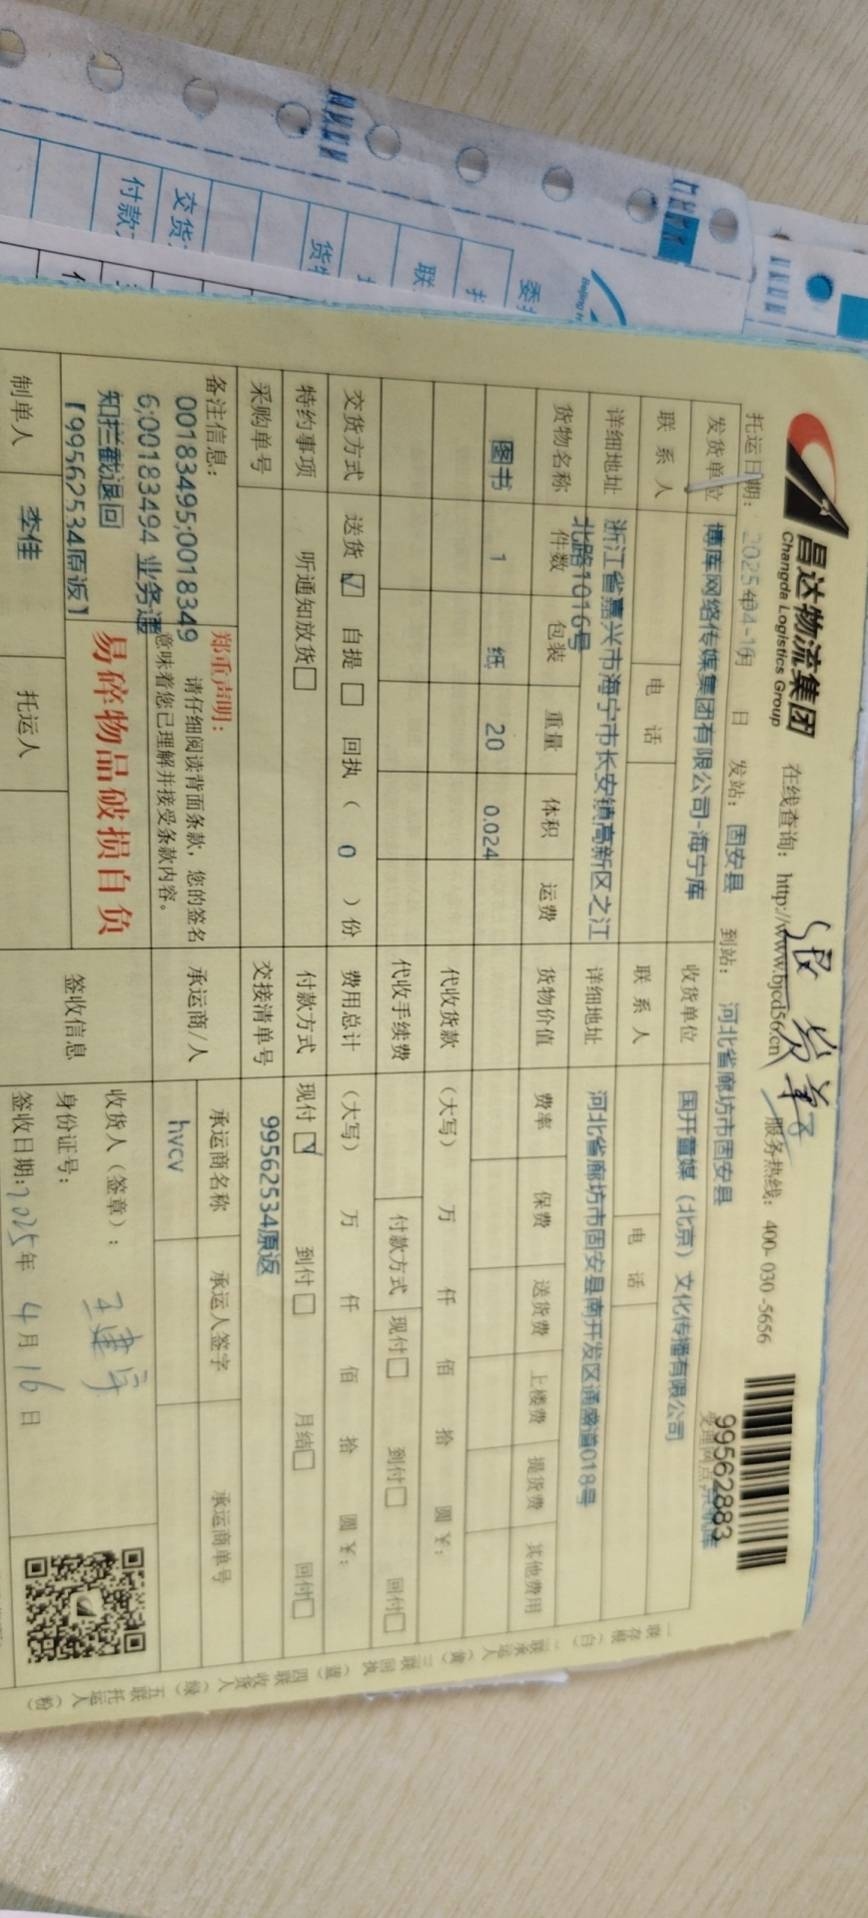 昌达物流集团
Changda Logistics Group
在线查询：http://www.bjcd56.cn
服务热线：400-030-5656
99562883
托运日期：2025年04-16月 日 发站：固安县 到站：河北省廊坊市固安县
发货单位 博库网络传媒集团有限公司-海宁库 收货单位 国开童媒（北京）文化传播有限公司
联系人 电话 联系人 电话
详细地址 浙江省嘉兴市海宁市长安镇高新区之江 详细地址 河北省廊坊市固安县南开发区通盛道018号
北路1016号
货物名称 件数 包装 重量 体积 运费 货物价值 费率 保费 送货费 上楼费 提货费 其他费用
图书 1 纸 20 0.024
代收货款 （大写） 万 仟 佰 拾 圆 ￥：
代收手续费 付款方式 现付□ 到付□ 回付□
交货方式 送货☑ 自提□ 回执（ 0 ）份 费用总计 （大写） 万 仟 佰 拾 圆 ￥：
特约事项 听通知放货□ 付款方式 现付☑ 到付□ 月结□ 回付□
采购单号 交接清单号 99562534原返
备注信息：
00183495;0018349
6;00183494 业务通
知拦截退回
【99562534原返】
郑重声明：
请仔细阅读背面条款，您的签名
意味着您已理解并接受条款内容。
易碎物品破损自负
承运商/人 承运商名称 承运人签字 承运商单号
hvcv
签收信息 收货人（签章）：
身份证号：
签收日期：2025年 4月16日
制单人 李佳 托运人
一联存根（白） 二联承运人（黄） 三联回执（蓝） 四联收货人（绿） 五联托运人（粉）
付款
交货
货
联
委